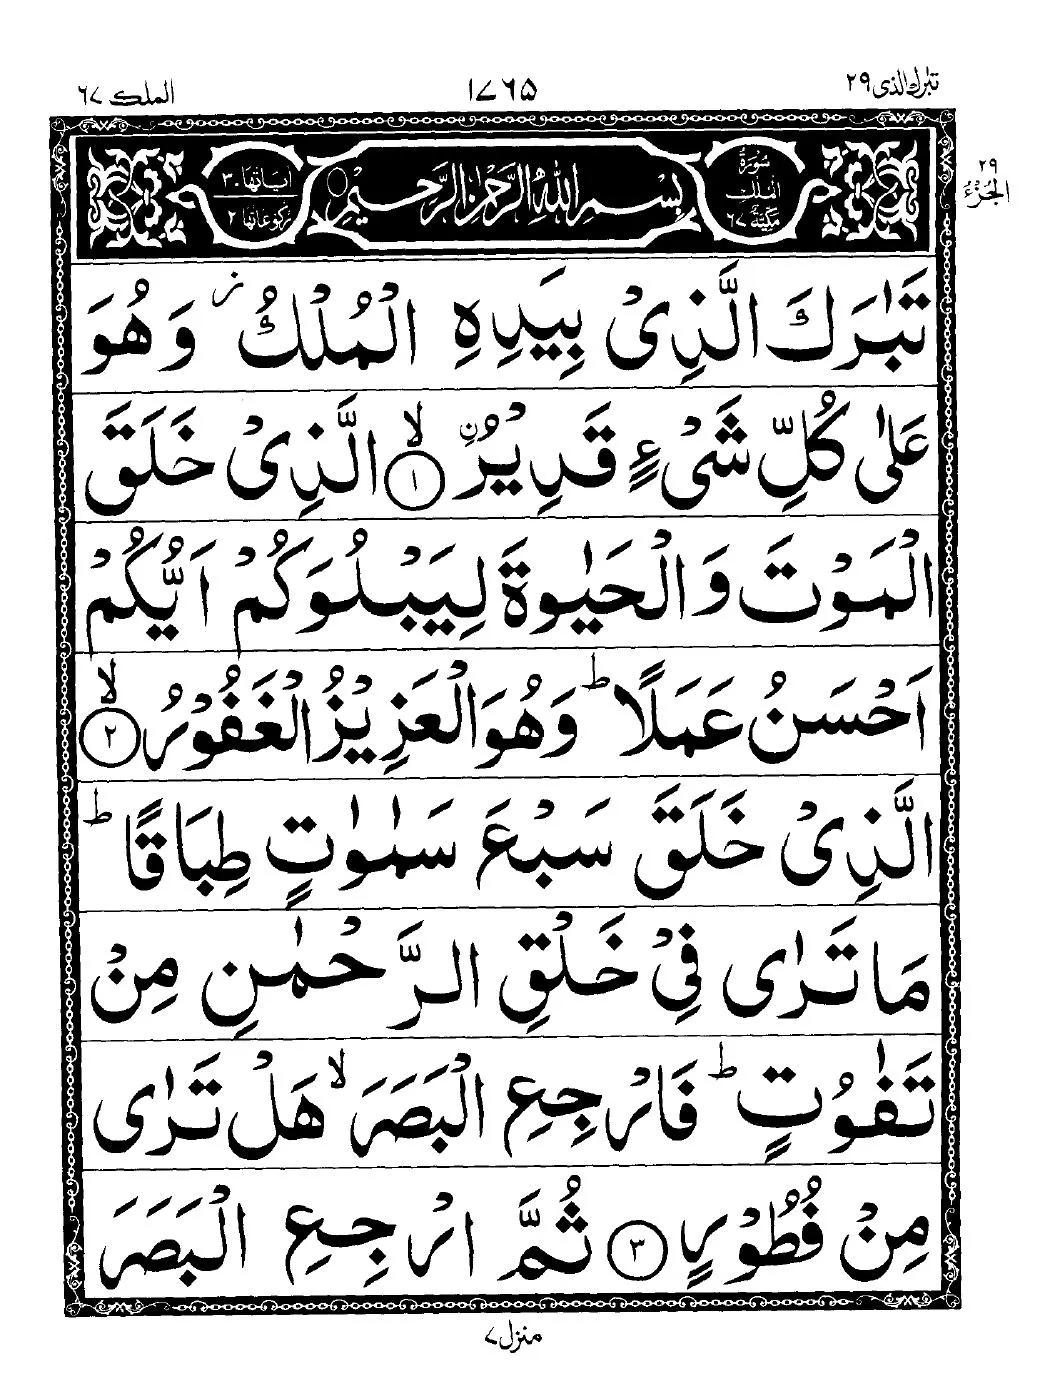 تبٰرك الذی ٢٩
١٧٦٥
الملك ٦٧
٢٩
الجزء
سُوْرَةُ
مَكِّيَّةٌ ٦٧
بِسْمِ اللّٰهِ الرَّحْمٰنِ الرَّحِيْمِ
اٰيَاتُهَا ٣٠
رُكُوْعَاتُهَا ٢
تَبٰرَكَ الَّذِیْ بِيَدِهِ الْمُلْكُ ز وَهُوَ
عَلٰى كُلِّ شَیْءٍ قَدِيْرُ ۨ ۙ ﴿١﴾ الَّذِیْ خَلَقَ
الْمَوْتَ وَالْحَيٰوةَ لِيَبْلُوَكُمْ اَيُّكُمْ
اَحْسَنُ عَمَلًا ؕ وَهُوَ الْعَزِيْزُ الْغَفُوْرُ ۙ ﴿٢﴾
الَّذِیْ خَلَقَ سَبْعَ سَمٰوٰتٍ طِبَاقًا ؕ
مَا تَرٰى فِیْ خَلْقِ الرَّحْمٰنِ مِنْ
تَفٰوُتٍ ؕ فَارْجِعِ الْبَصَرَ ۙ هَلْ تَرٰى
مِنْ فُطُوْرٍ ﴿٣﴾ ثُمَّ ارْجِعِ الْبَصَرَ
منزل ٧